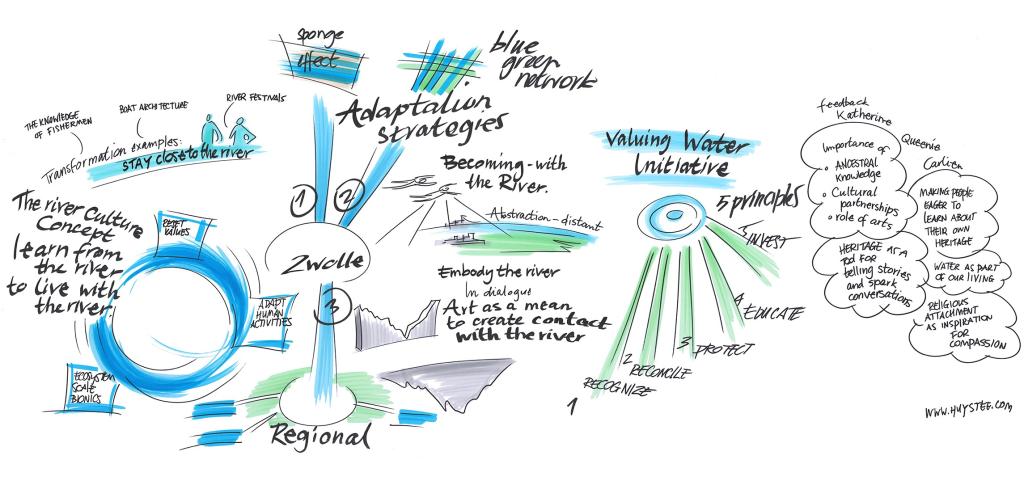 sponge
effect
blue
green
network
Adaptation
strategies
THE KNOWLEDGE
OF FISHERMEN
BOAT ARCHITECTURE
RIVER FESTIVALS
Transformation examples:
STAY close to the river
The river Culture
Concept
learn from
the river
to live with
the river.
RESET
VALUES
ADAPT
HUMAN
ACTIVITIES
ECOSYSTEM
SCALE
BIONICS
1
2
Zwolle
3
Regional
Becoming-with
the River.
Abstraction-distant
Embody the river
In dialogue
Art as a mean
to create contact
with the river
Valuing Water
Initiative
5 principles
5 INVEST
4
EDUCATE
3
PROTECT
2
RECONCILE
RECOGNIZE
1
feedback
Katherine
Importance of
• ANCESTRAL
Knowledge
• Cultural
partnerships
• role of arts
HERITAGE AS A
tool FOR
telling stories
and spark
conversations
Queenie
Carlien
MAKING PEOPLE
EAGER TO
LEARN ABOUT
THEIR OWN
HERITAGE
WATER AS PART
OF OUR LIVING
RELIGIOUS
ATTACHMENT
AS INSPIRATION
FOR
COMPASSION
WWW.HUYSTEE.COM